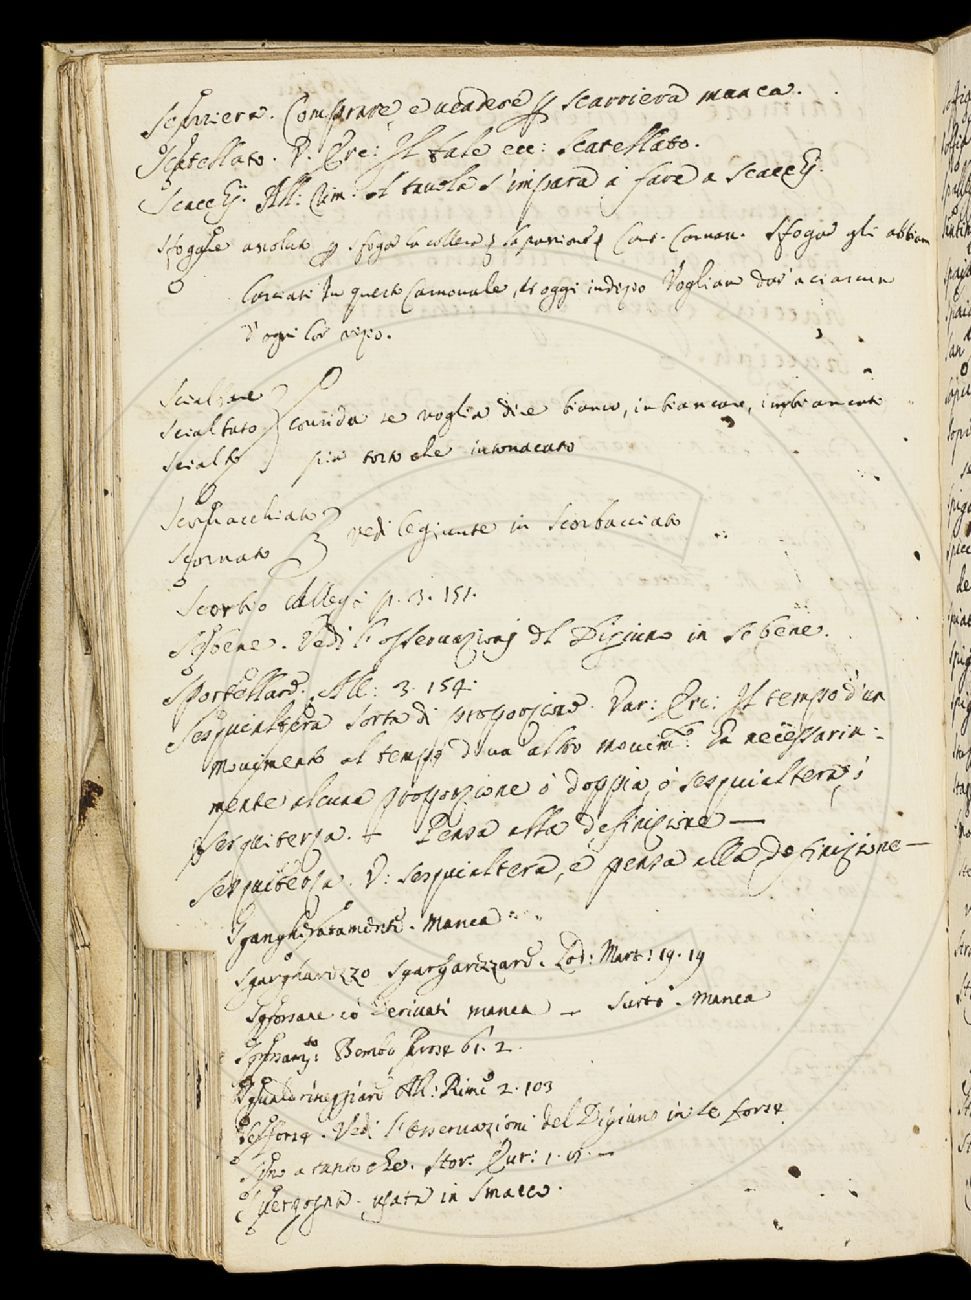 Scarriera. Comprare e vendere p scarriera manca.
Scatellato. V. Erc: Il tale ecc: scatellato.
Scacchi. All: Rim. al tavola s'impara à fare a scacchi.
Sfogare assoluto p sfogar la collera, la passione, Sfogar gli abbiam
lasciati In questo Carnovale, da oggi indrio Vogliam dar' a ciascun
d'ogni
Scialbare
Scialbato considera se voglia dire bianco, imbiancare, imbiancato
Scialbo più tosto che intonacato
Scornacchiato
Scornato vedi le giunte in Scorbacciato
Scorbio Allegr: p. 3. 151.
Sebene. Vedi l'osservazioni del Digiuno in se bene.
Sportellare. All: 3. 154.
Sesquialtera sorta di proporzione. Var: Erc: Il tempo d'un
movimento al tempo d'un altro movim.to ha necessaria-
mente alcuna proporzione ò doppia, ò sesquialtera, ò
sesquiterza. + Pensa alla definizione —
Sesquiterza. V: sesquialtera, e pensa alla definizione —
Sgangheratamente. manca
Sgargarizzo sgargarizzare. Lod: Matt: 19. 19
Sforzare cò derivati manca — surto. manca
Sforzam.to: Bembo Prose 61. 2.
All: Rime 2. 103
Se forse. Vedi l'osservazioni del Digiuno in se forse.
Sino a tanto che. Stor. Eur: 1. 15. —
Svergogna. usata in Smacco.